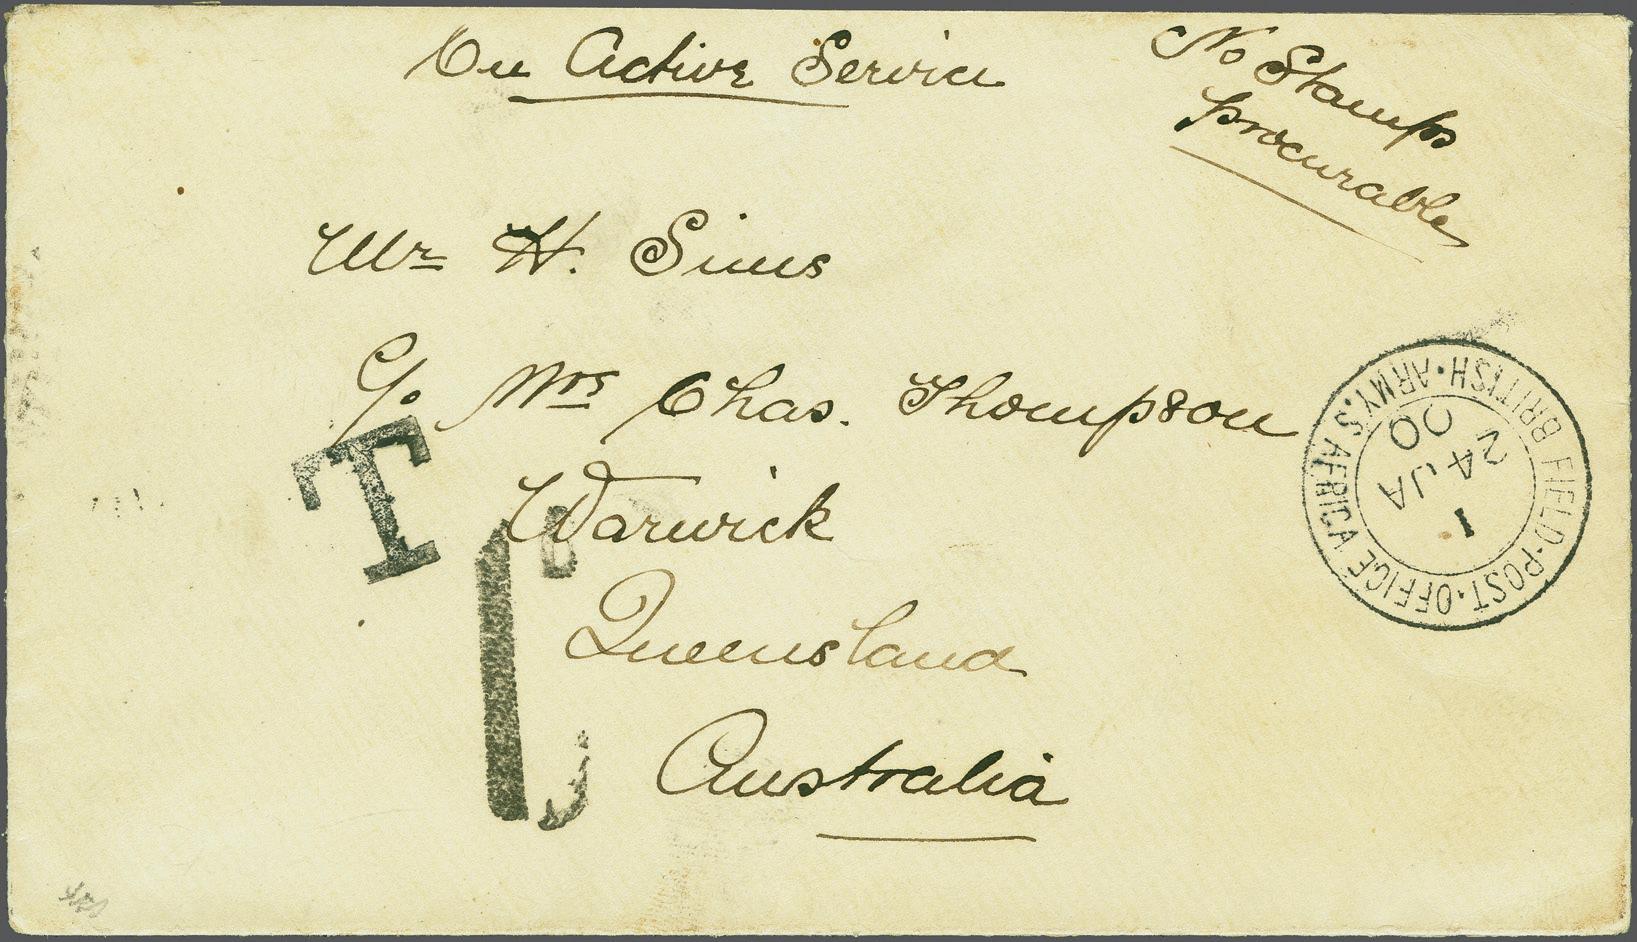 On Active Service
No Stamps
procurable
Mr H. Sims
C/o Mrs Chas. Thompson
Warwick
Queensland
Australia
T
FIELD·POST·OFFICE
BRITISH·ARMY·S.AFRICA
1
24 JA
00